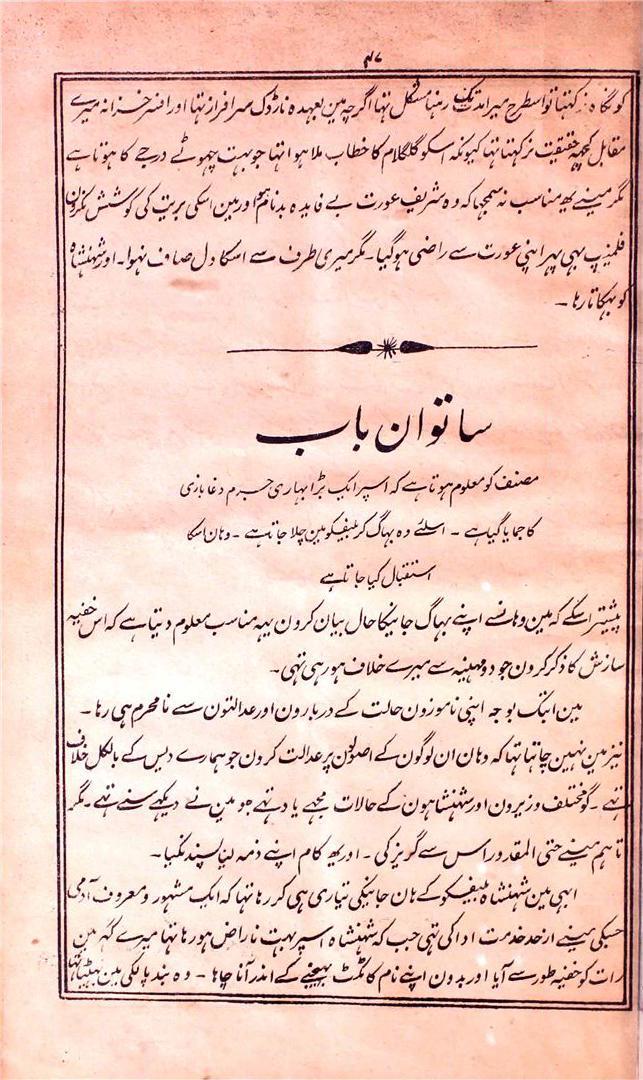 ۴۷
کو نگاہ رکہتا تو اسطرح میرا مدت تک رہنا مشکل تہا اگرچہ مین بعہدہ نارڈوک سرافراز تہا اور افسر خزانہ میرے
مقابل کچہہ حقیقت نرکہتا تہا کیونکہ اسکو گلگلام کا خطاب ملا ہوا تہا جو بہت چہوٹے درجے کا ہوتا ہے
مگر مینے یہ مناسب نہ سمجہا کہ وہ شریف عورت بے فایدہ بدنام ہو اور مین اسکی بریت کی کوشش نکرون
فلمنیپ بہی پہر اپنی عورت سے راضی ہوگیا۔ مگر میری طرف سے اسکا دل صاف نہوا۔ اور شہنشاہ
کو بہکاتا رہا ۔
ساتوان باب
مصنف کو معلوم ہوتا ہے کہ اسپر ایک بڑا بہاری جرم دغا بازی
کا جمایا گیا ہے ۔ اسلئے وہ بہاگ کر بلیفسکو مین چلا جاتا ہے ۔ وہان اسکا
استقبال کیا جاتا ہے
پیشتر اسکے کہ مین وہانسے اپنے بہاگ جانیکا حال بیان کرون یہہ مناسب معلوم دیتا ہے کہ اس خفیہ
سازش کا ذکر کرون جو دو مہینہ سے میرے خلاف ہو رہی تہی۔
مین ابتک بوجہ اپنی ناموزون حالت کے دربارون اور عدالتون سے نامحرم ہی رہا ۔
نیز مین نہین چاہتا تہا کہ وہان ان لوگون کے اصولون پر عدالت کرون جو ہمارے دیس کے بالکل خلاف
تہے ۔ گو مختلف وزیرون اور شہنشاہون کے حالات مجہے یاد تہے جو مین نے دیکہے سنے تہے ۔ مگر
تاہم مینے حتی المقدور اس سے گریز کی ۔ اور یہ کام اپنے ذمہ لینا پسند نکیا ۔
ابہی مین شہنشاہ بلیفسکو کے ہان جانیکی تیاری ہی کر رہا تہا کہ ایک مشہور و معروف آدمی
جسکی مینے ازحد خدمت ادا کی تہی جب کہ شہنشاہ اسپر بہت ناراض ہو رہا تہا میرے گہر مین
رات کو خفیہ طور سے آیا اور بدون اپنے نام کا ٹکٹ بہیجنے کے اندر آنا چاہا ۔ وہ بند پالکی مین بیٹہا تہا